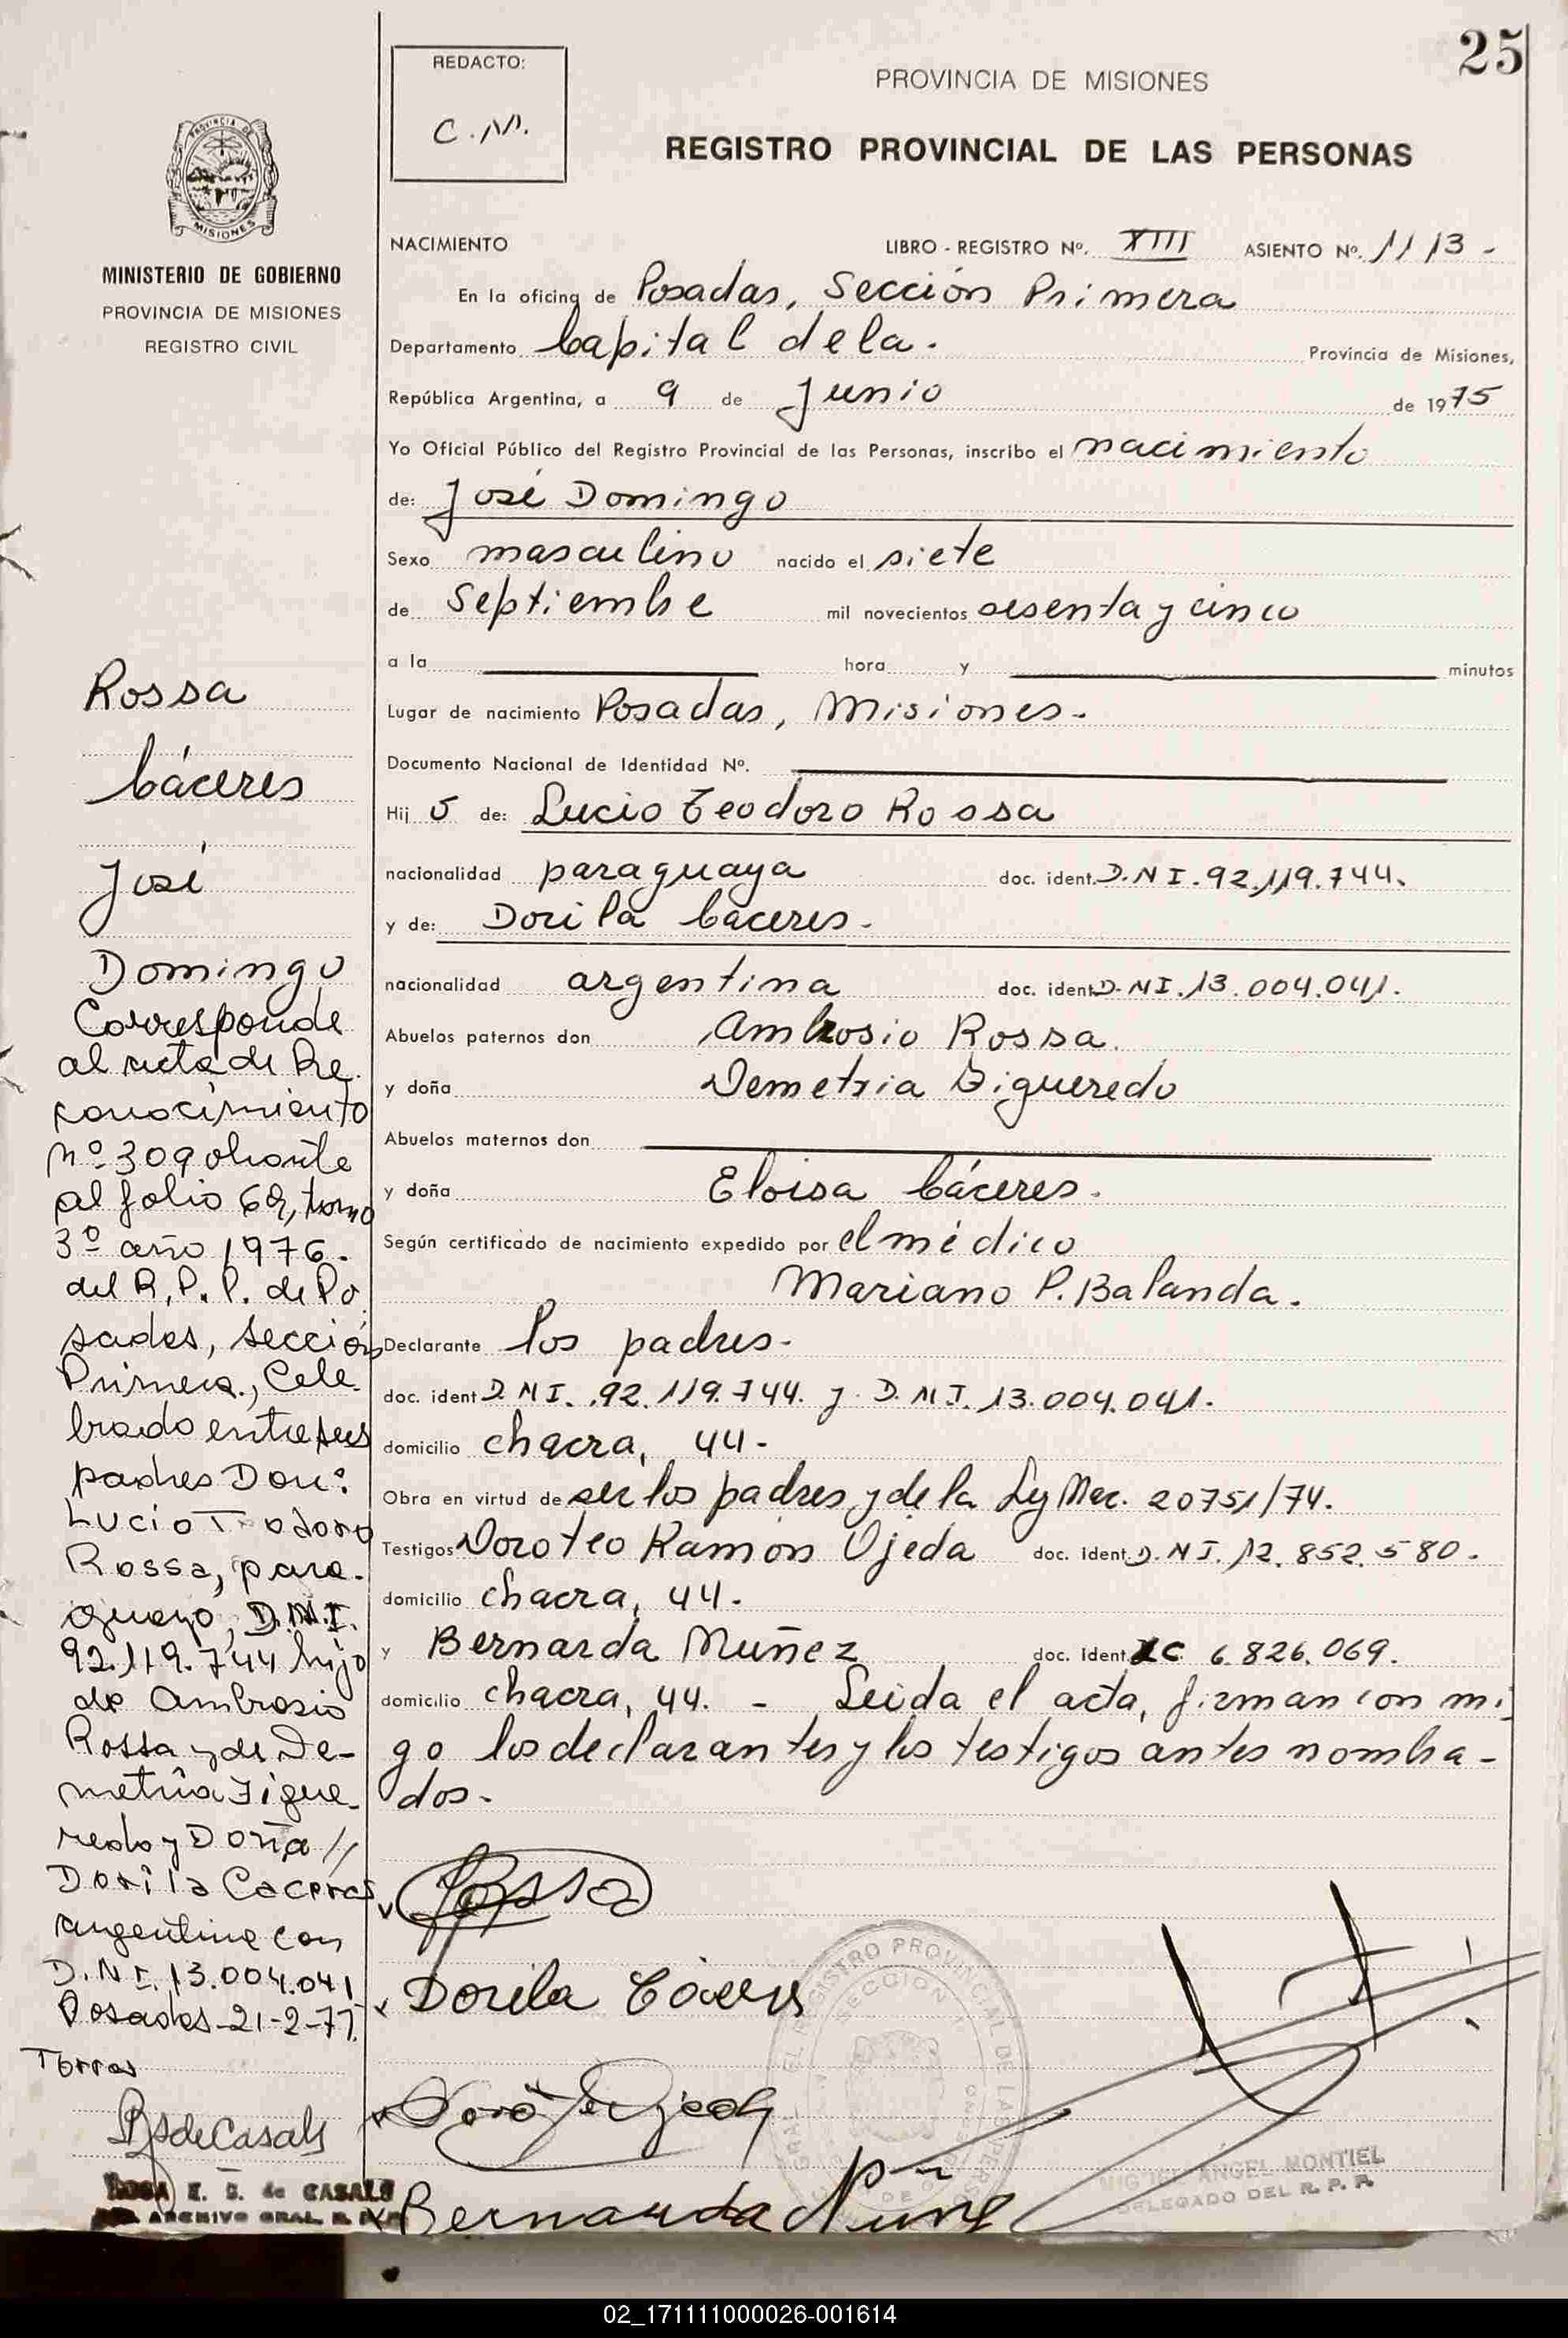 25
REDACTO:
C.M.
PROVINCIA DE MISIONES
REGISTRO PROVINCIAL DE LAS PERSONAS
PROVINCIA DE
MISIONES
MINISTERIO DE GOBIERNO
PROVINCIA DE MISIONES
REGISTRO CIVIL
NACIMIENTO LIBRO - REGISTRO Nº. XIII ASIENTO Nº. 1113 -
En la oficina de Posadas, Sección Primera
Departamento Capital de la. Provincia de Misiones,
República Argentina, a 9 de Junio de 1975
Yo Oficial Público del Registro Provincial de las Personas, inscribo el nacimiento
de: José Domingo
Sexo masculino nacido el siete
de Septiembre mil novecientos sesenta y cinco
a la hora y minutos
Lugar de nacimiento Posadas, Misiones-
Documento Nacional de Identidad Nº.
Hij o de: Lucio Teodoro Rossa
nacionalidad paraguaya doc. ident. D.N I. 92.119.744.
y de: Dorila Caceres-
nacionalidad argentina doc. ident. D. NI. 13.004.041.
Abuelos paternos don Ambrosio Rossa.
y doña Demetria Figueredo
Abuelos maternos don
y doña Eloisa Cáceres.
Según certificado de nacimiento expedido por el médico
Mariano P. Balanda.
Declarante los padres-
doc. ident D. N I. 92.119.744. y D. N I. 13.004.041.
domicilio chacra, 44-
Obra en virtud de ser los padres y de la Ley Nac. 20751/74.
Testigos Doroteo Ramón Ojeda doc. ident. D. N I. 12.852.580.
domicilio chacra, 44-
y Bernarda Muñez doc. ident. LC 6.826.069.
domicilio chacra, 44. - Leida el acta, firman con mi
go los declarantes y los testigos antes nombra-
dos-
Rossa
Cáceres
José
Domingo
Corresponde
al acta de Re
conocimiento
nº 309 obrante
al folio 69, tomo
3º año 1976-
del R. P. P. de Po
sadas, sección
Primera., Cele
brado entre sus
padres Don:
Lucio Teodoro
Rossa, para-
guayo, D.N.I.
92.119.744 hijo
de Ambrosio
Rossa y de De-
metria Figue-
redo y Doña //
Dorila Caceres
argentina con
D.N I. 13.004.041
Posadas-21-2-77.
Torres
Rossa
Dorila Cáceres
Bernarda Nuñe
REGISTRO PROVINCIAL DE LAS PERSO
SECCION
MIGUEL ANGEL MONTIEL
DELEGADO DEL R. P. P.
ROSA E. S. de CASALS
ARCHIVO GRAL. R. P. P.
02_171111000026-001614